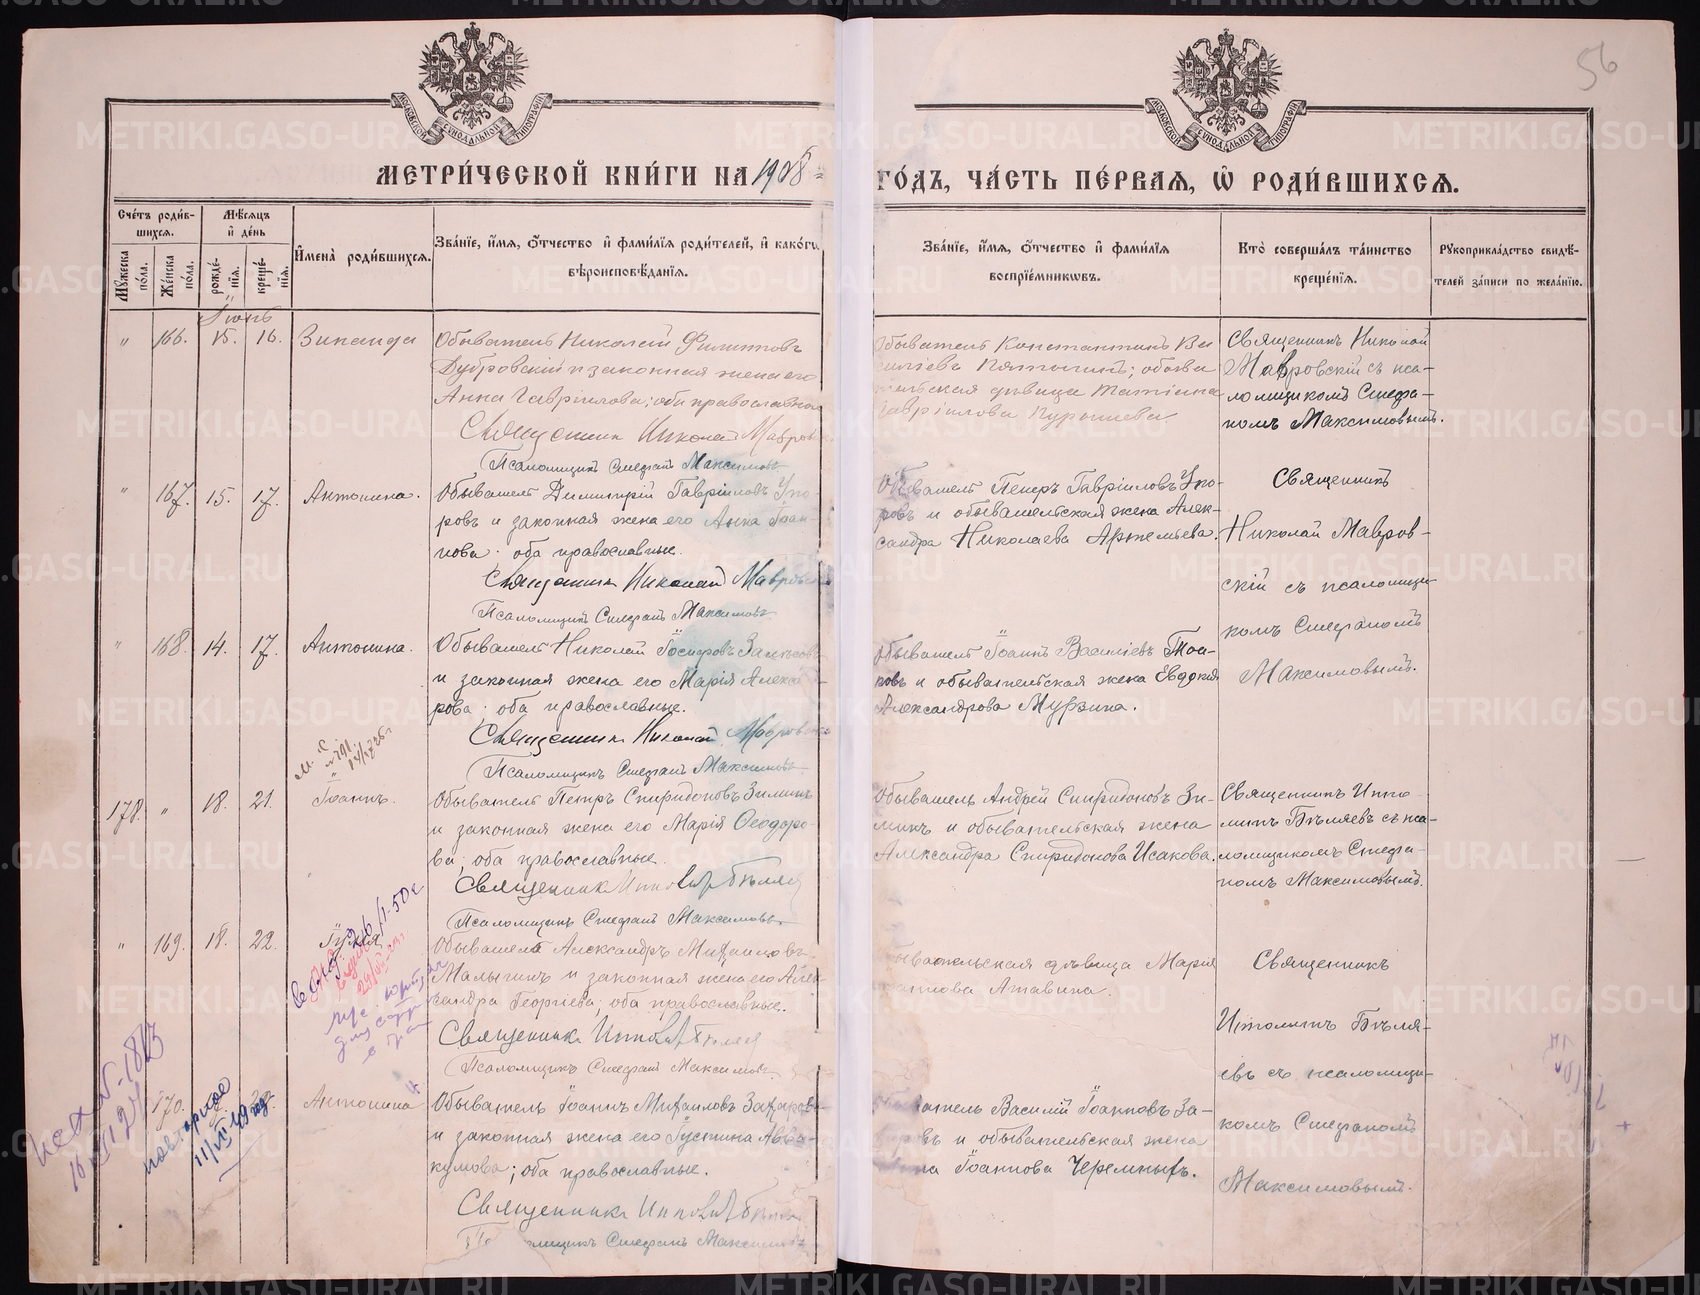 56
МОСКОВСКОЙ СУНОДАЛЬНОЙ ТИПОГРАФІИ
МОСКОВСКОЙ СУНОДАЛЬНОЙ ТИПОГРАФІИ
МЕТРИ́ЧЕСКОЙ КНИ́ГИ НА 1908
ГО́ДЪ, ЧА́СТЬ ПЕ́РВАЯ, Ѡ РОДИ́ВШИХСЯ.
Сче́тъ роди́в-
шихся.
Му́жеска по́ла.
Же́нска по́ла.
Мѣ́сяцъ
и де́нь
рожде́-
нія.
креще́-
нія.
Имена̀ роди́вшихся.
Зва́ніе, и́мя, о́тчество и фами́лія роди́телей, и како́гѡ
вѣроисповѣ́данія.
Зва́ніе, и́мя, о́тчество и фами́лія
воспріе́мниковъ.
Кто̀ соверша́лъ та́инство
креще́нія.
Рукоприкла́дство свидѣ́-
телей за́писи по жела́нію.
Іюнь
" 166. 15. 16. Зинаида
Обыватель Николай Филиповъ
Дубровскій и законная жена его
Анна Гаврилова; оба православные
Священникъ Николай Мавровскій
Псаломщикъ Стефанъ Максимовъ
Обыватель Константинъ Ва
силіевъ Пятыгинъ; обыва
тельская дѣвица Татіана
Гавріилова
Священникъ Николай
Мавровскій съ пса-
ломщикомъ Стефа-
номъ Максимовымъ.
" 167. 15. 17. Антонина.
Обыватель Димитрій Гавріиловъ Упо-
ровъ и законная жена его Анна Іоан-
нова. оба православные.
Священникъ Николай Мавровскій
Псаломщикъ Стефанъ Максимовъ
Обыватель Петръ Гавріиловъ Упо-
ровъ и обывательская жена Алек-
сандра Николаева Артемьева.
Священникъ
Николай Мавров-
скій съ псаломщи-
комъ Стефаномъ
Максимовымъ.
" 168. 14. 17. Антонина.
Обыватель Николай Іосифовъ
и законная жена его Марія
рова. оба православные.
Священникъ Николай Мавровскій
Псаломщикъ Стефанъ Максимовъ
Обыватель Іоаннъ Василіевъ
ковъ и обывательская жена Евдокія
Александрова Мурзина.
178. " 18. 21. Іоаннъ.
Обыватель Петръ Спиридоновъ Зиминъ
и законная жена его Марія Ѳеодоро-
ва; оба православные.
Священникъ Ипполитъ Бѣляев
Псаломщикъ Стефанъ Максимовъ
Обыватель Андрей Спиридоновъ Зи-
минъ и обывательская жена
Александра Спиридонова Исакова.
Священникъ Иппо-
литъ Бѣляевъ съ пса-
ломщикомъ Стефа-
номъ Максимовымъ.
" 169. 18. 22. Іулія
Обыватель Александръ Михаиловъ
Малыгинъ и законная жена его Алек
сандра Георгіева; оба православные.
Священникъ Ипполитъ Бѣляев
Псаломщикъ Стефанъ Максимовъ
Обывательская дѣвица Марія
Атавина.
Священникъ
Ипполитъ Бѣля-
евъ съ псаломщи-
комъ Стефаномъ
Максимовымъ.
170. Антонина
Обыватель Іоаннъ Михаиловъ Захаровъ
и законная жена его Іустина Авва-
кумова; оба православные.
Священникъ Ипполитъ
Псаломщикъ Стефанъ Максимовъ
Обыватель Василій Іоанновъ За-
харовъ и обывательская жена
Іоаннова Черемныхъ.
повторное
METRIKI.GASO-URAL.RU